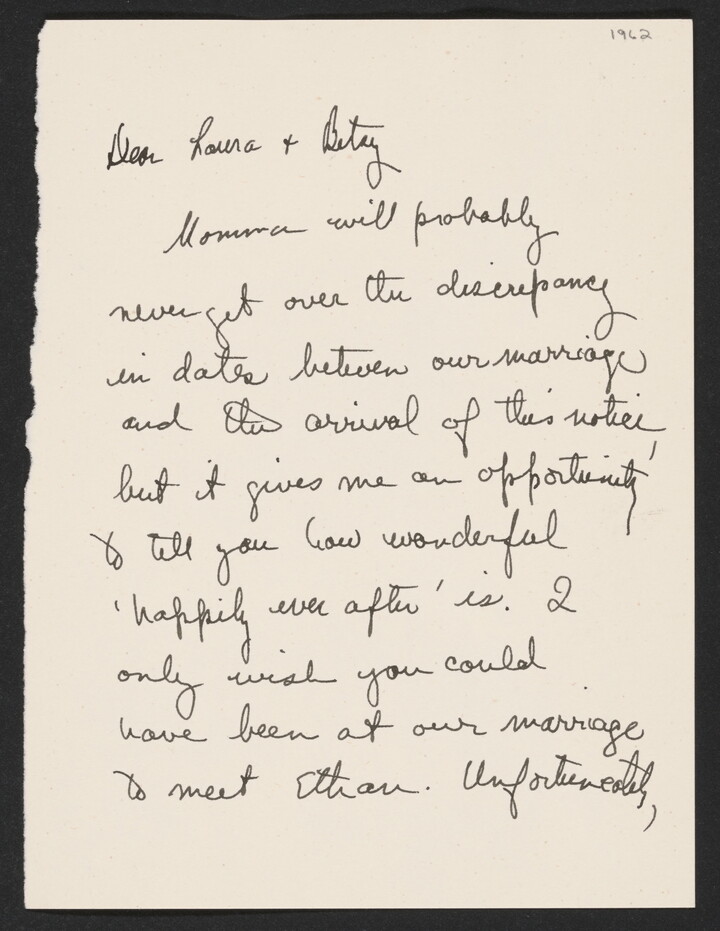 1962
Dear Laura + Betsy
Momma will probably
never get over the discrepancy
in dates between our marriage
and the arrival of this notice,
but it gives me an opportunity
to tell you how wonderful
'happily ever after' is. I
only wish you could
have been at our marriage
to meet Ethan. Unfortuneately,